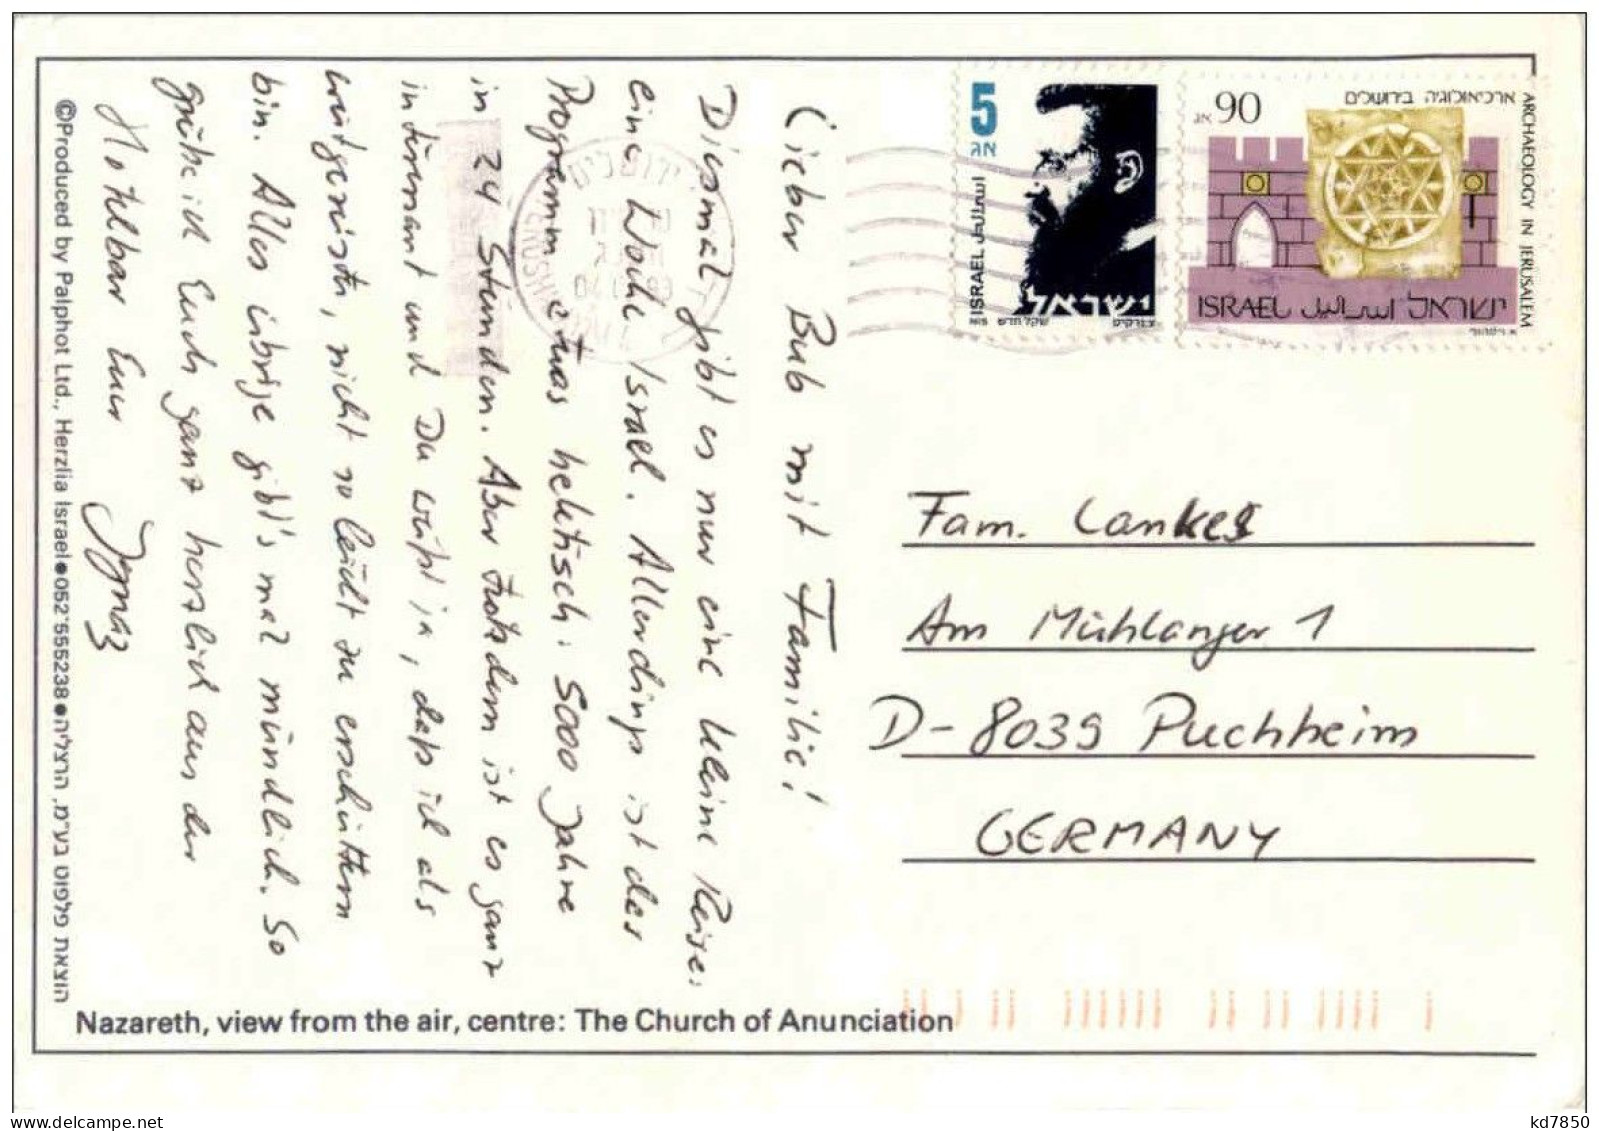 Lieber Bub mit Familie!
Diesmal gibt es nur eine kleine Reise:
eine Woche Israel. Allerdings ist das
Programm etwas hektisch: 5000 Jahre
in 24 Stunden. Aber trotzdem ist es ganz
interessant und Du weißt ja, daß ich als
weitgereister, nicht so leicht zu erschüttern
bin. Alles übrige gibt's mal mündlich. So
grüße ich Euch ganz herzlich aus der
Euer Ignaz
©Produced by Palphot Ltd., Herzlia Israel●052'555238●הוצאת פלפוט בע"מ, הרצליה
Nazareth, view from the air, centre: The Church of Anunciation
5
אג
ISRAEL اسرائيل
ישראל
שקל חדש
90 אג
ארכיאולוגיה בירושלים
ARCHAEOLOGY IN JERUSALEM
ISRAEL اسرائيل ישראל
Fam. Lankes
Am Mühlanger 1
D-8039 Puchheim
GERMANY
kd7850